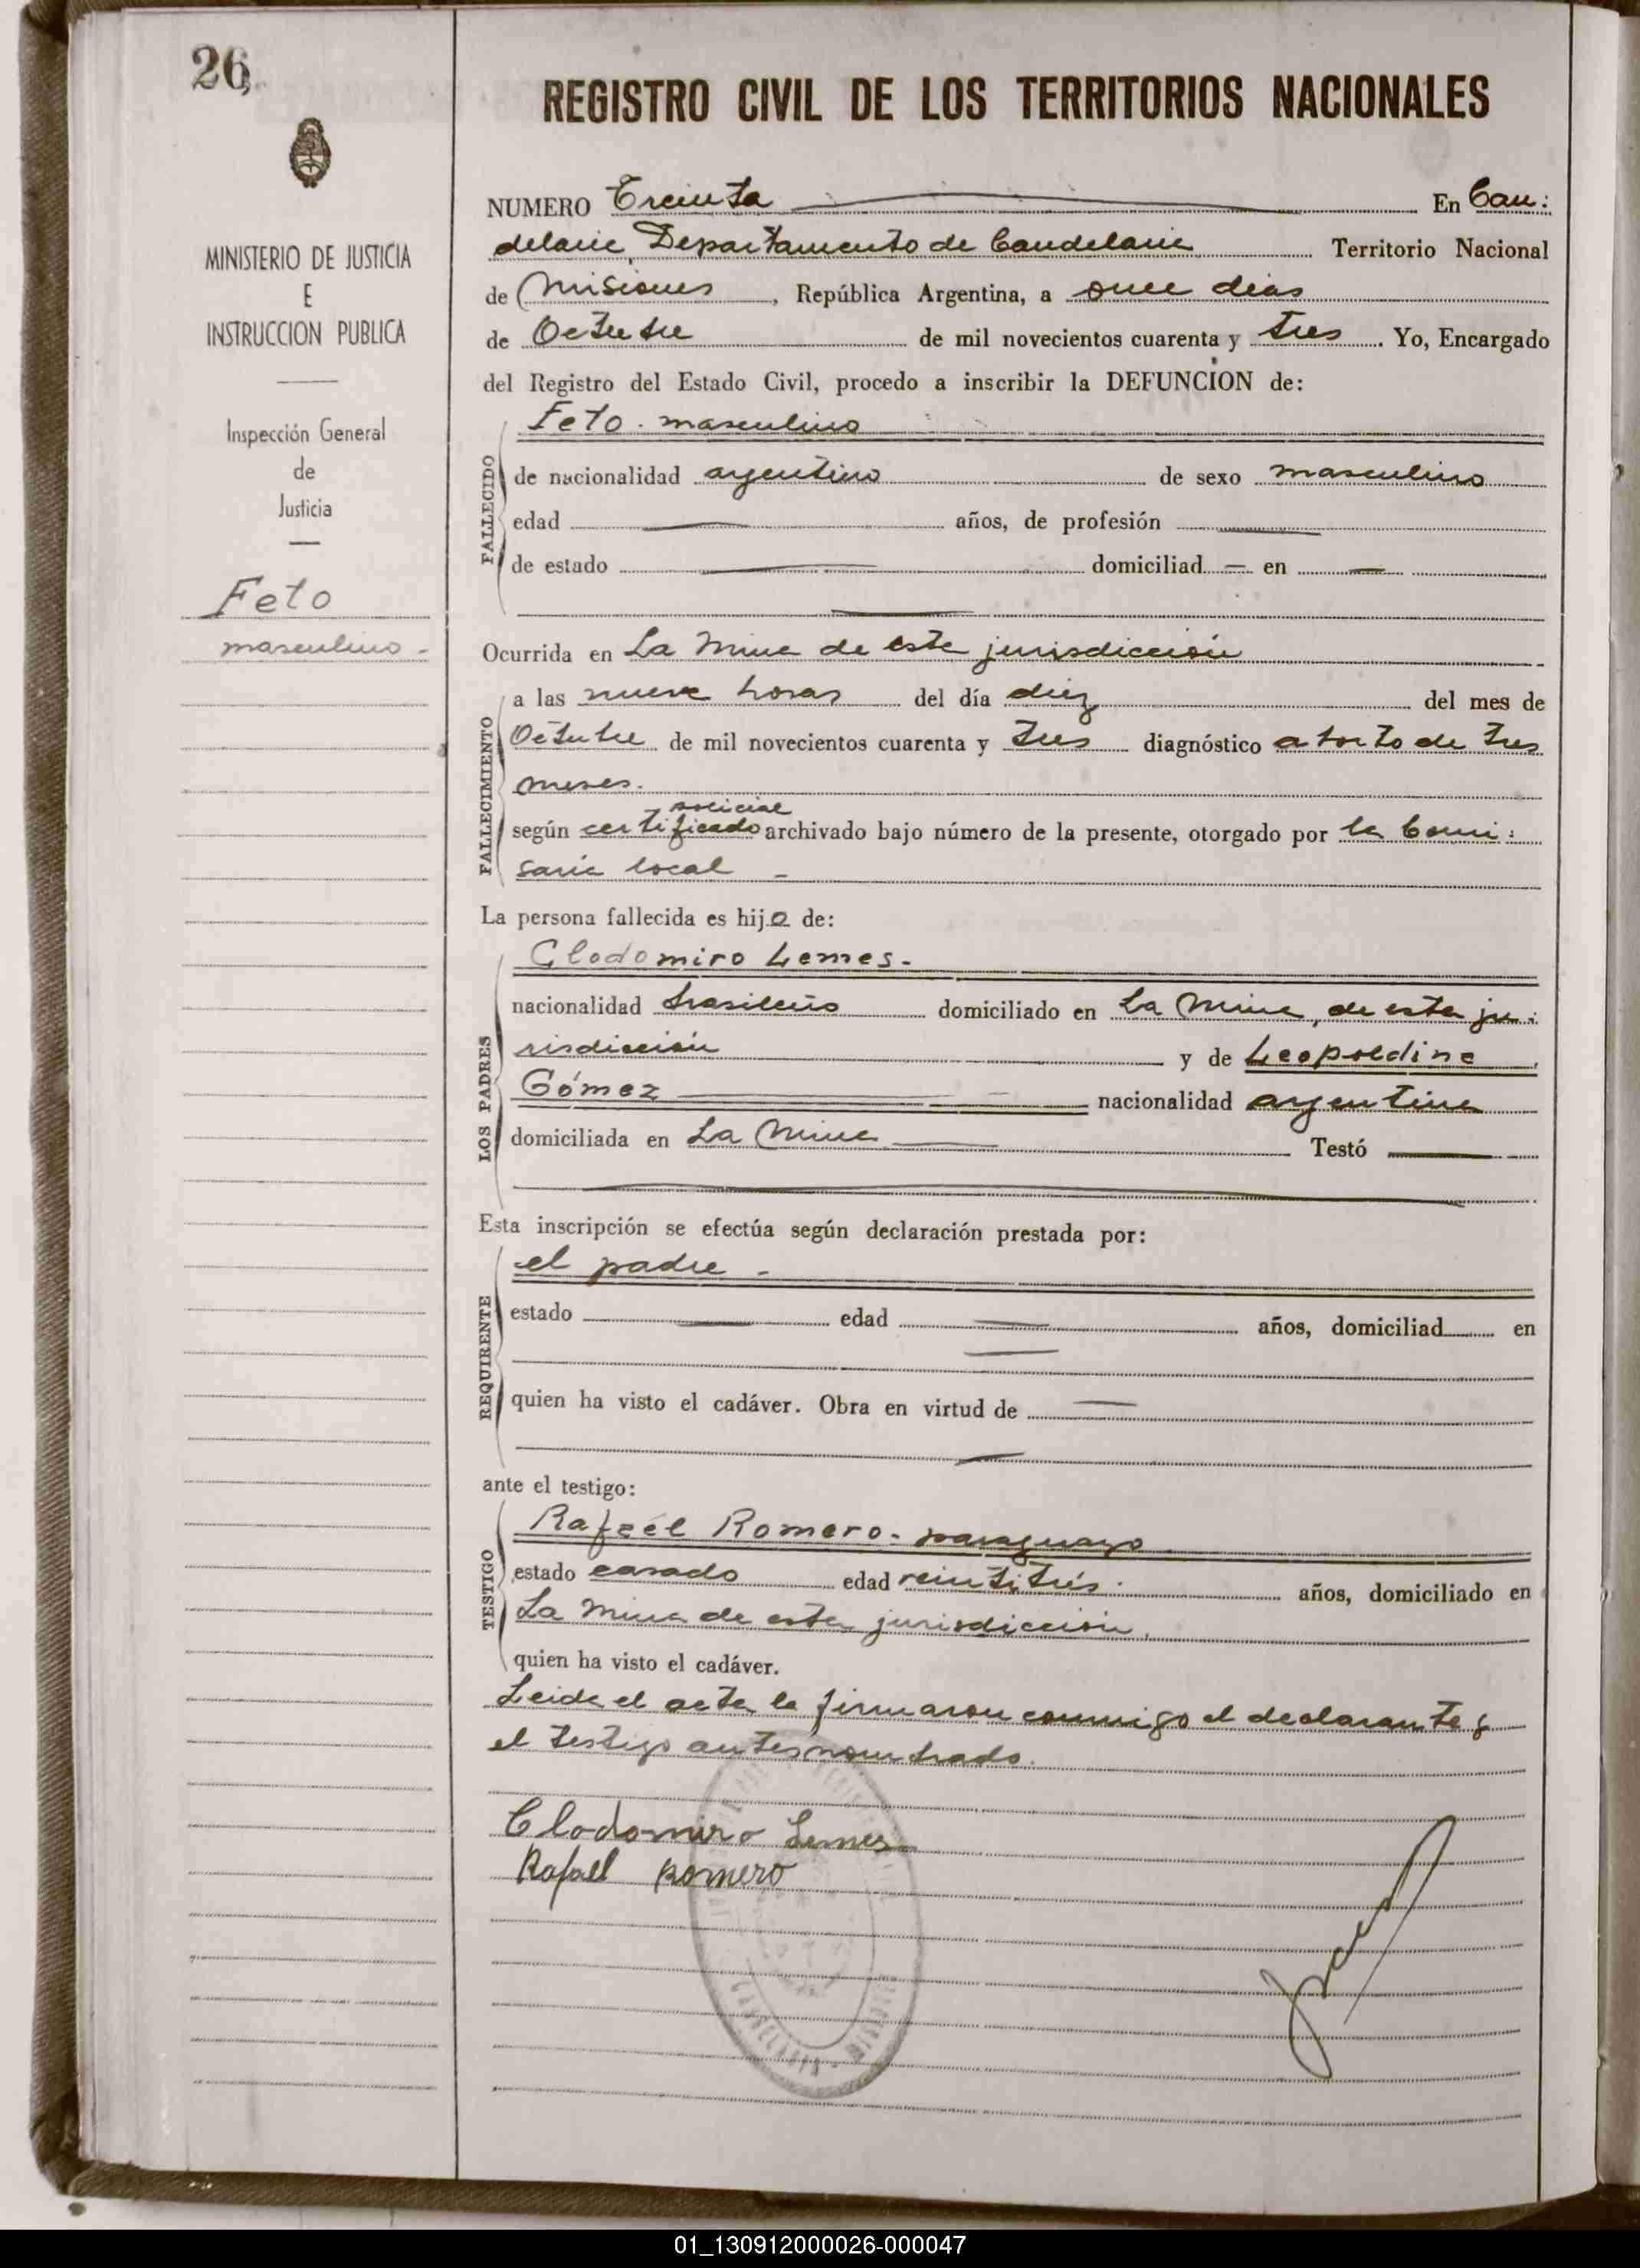 26
REGISTRO CIVIL DE LOS TERRITORIOS NACIONALES
MINISTERIO DE JUSTICIA
E
INSTRUCCION PUBLICA
Inspección General
de
Justicia
Feto
masculino -
NUMERO Treinta En Can:
delaria, Departamento de Candelaria Territorio Nacional
de Misiones, República Argentina, a once dias
de Octubre de mil novecientos cuarenta y tres. Yo, Encargado
del Registro del Estado Civil, procedo a inscribir la DEFUNCION de:
Feto - masculino
FALLECIDO
de nacionalidad argentino de sexo masculino
edad años, de profesión
de estado domiciliad — en —
Ocurrida en La Mina de esta jurisdicción
FALLECIMIENTO
a las nueve horas del día diez del mes de
Octubre de mil novecientos cuarenta y tres diagnóstico aborto de tres
meses.
policial
según certificado archivado bajo número de la presente, otorgado por la Comi:
saria local -
La persona fallecida es hijo de:
LOS PADRES
Clodomiro Lemes.-
nacionalidad brasileño domiciliado en La Mina, de esta ju:
risdicción y de Leopoldina
Gómez nacionalidad argentina
domiciliada en La Mina Testó
Esta inscripción se efectúa según declaración prestada por:
REQUIRENTE
el padre -
estado edad años, domiciliad en
quien ha visto el cadáver. Obra en virtud de
ante el testigo:
TESTIGO
Rafael Romero.- paraguayo
estado casado edad veintitrés años, domiciliado en
La Mina de esta jurisdicción,
quien ha visto el cadáver.
Leida el acta la firmaron conmigo el declarante y
el testigo antes nombrado.
Clodomiro Lemes
Rafael Romero
CANDELARIA - MISIONES
01_130912000026-000047